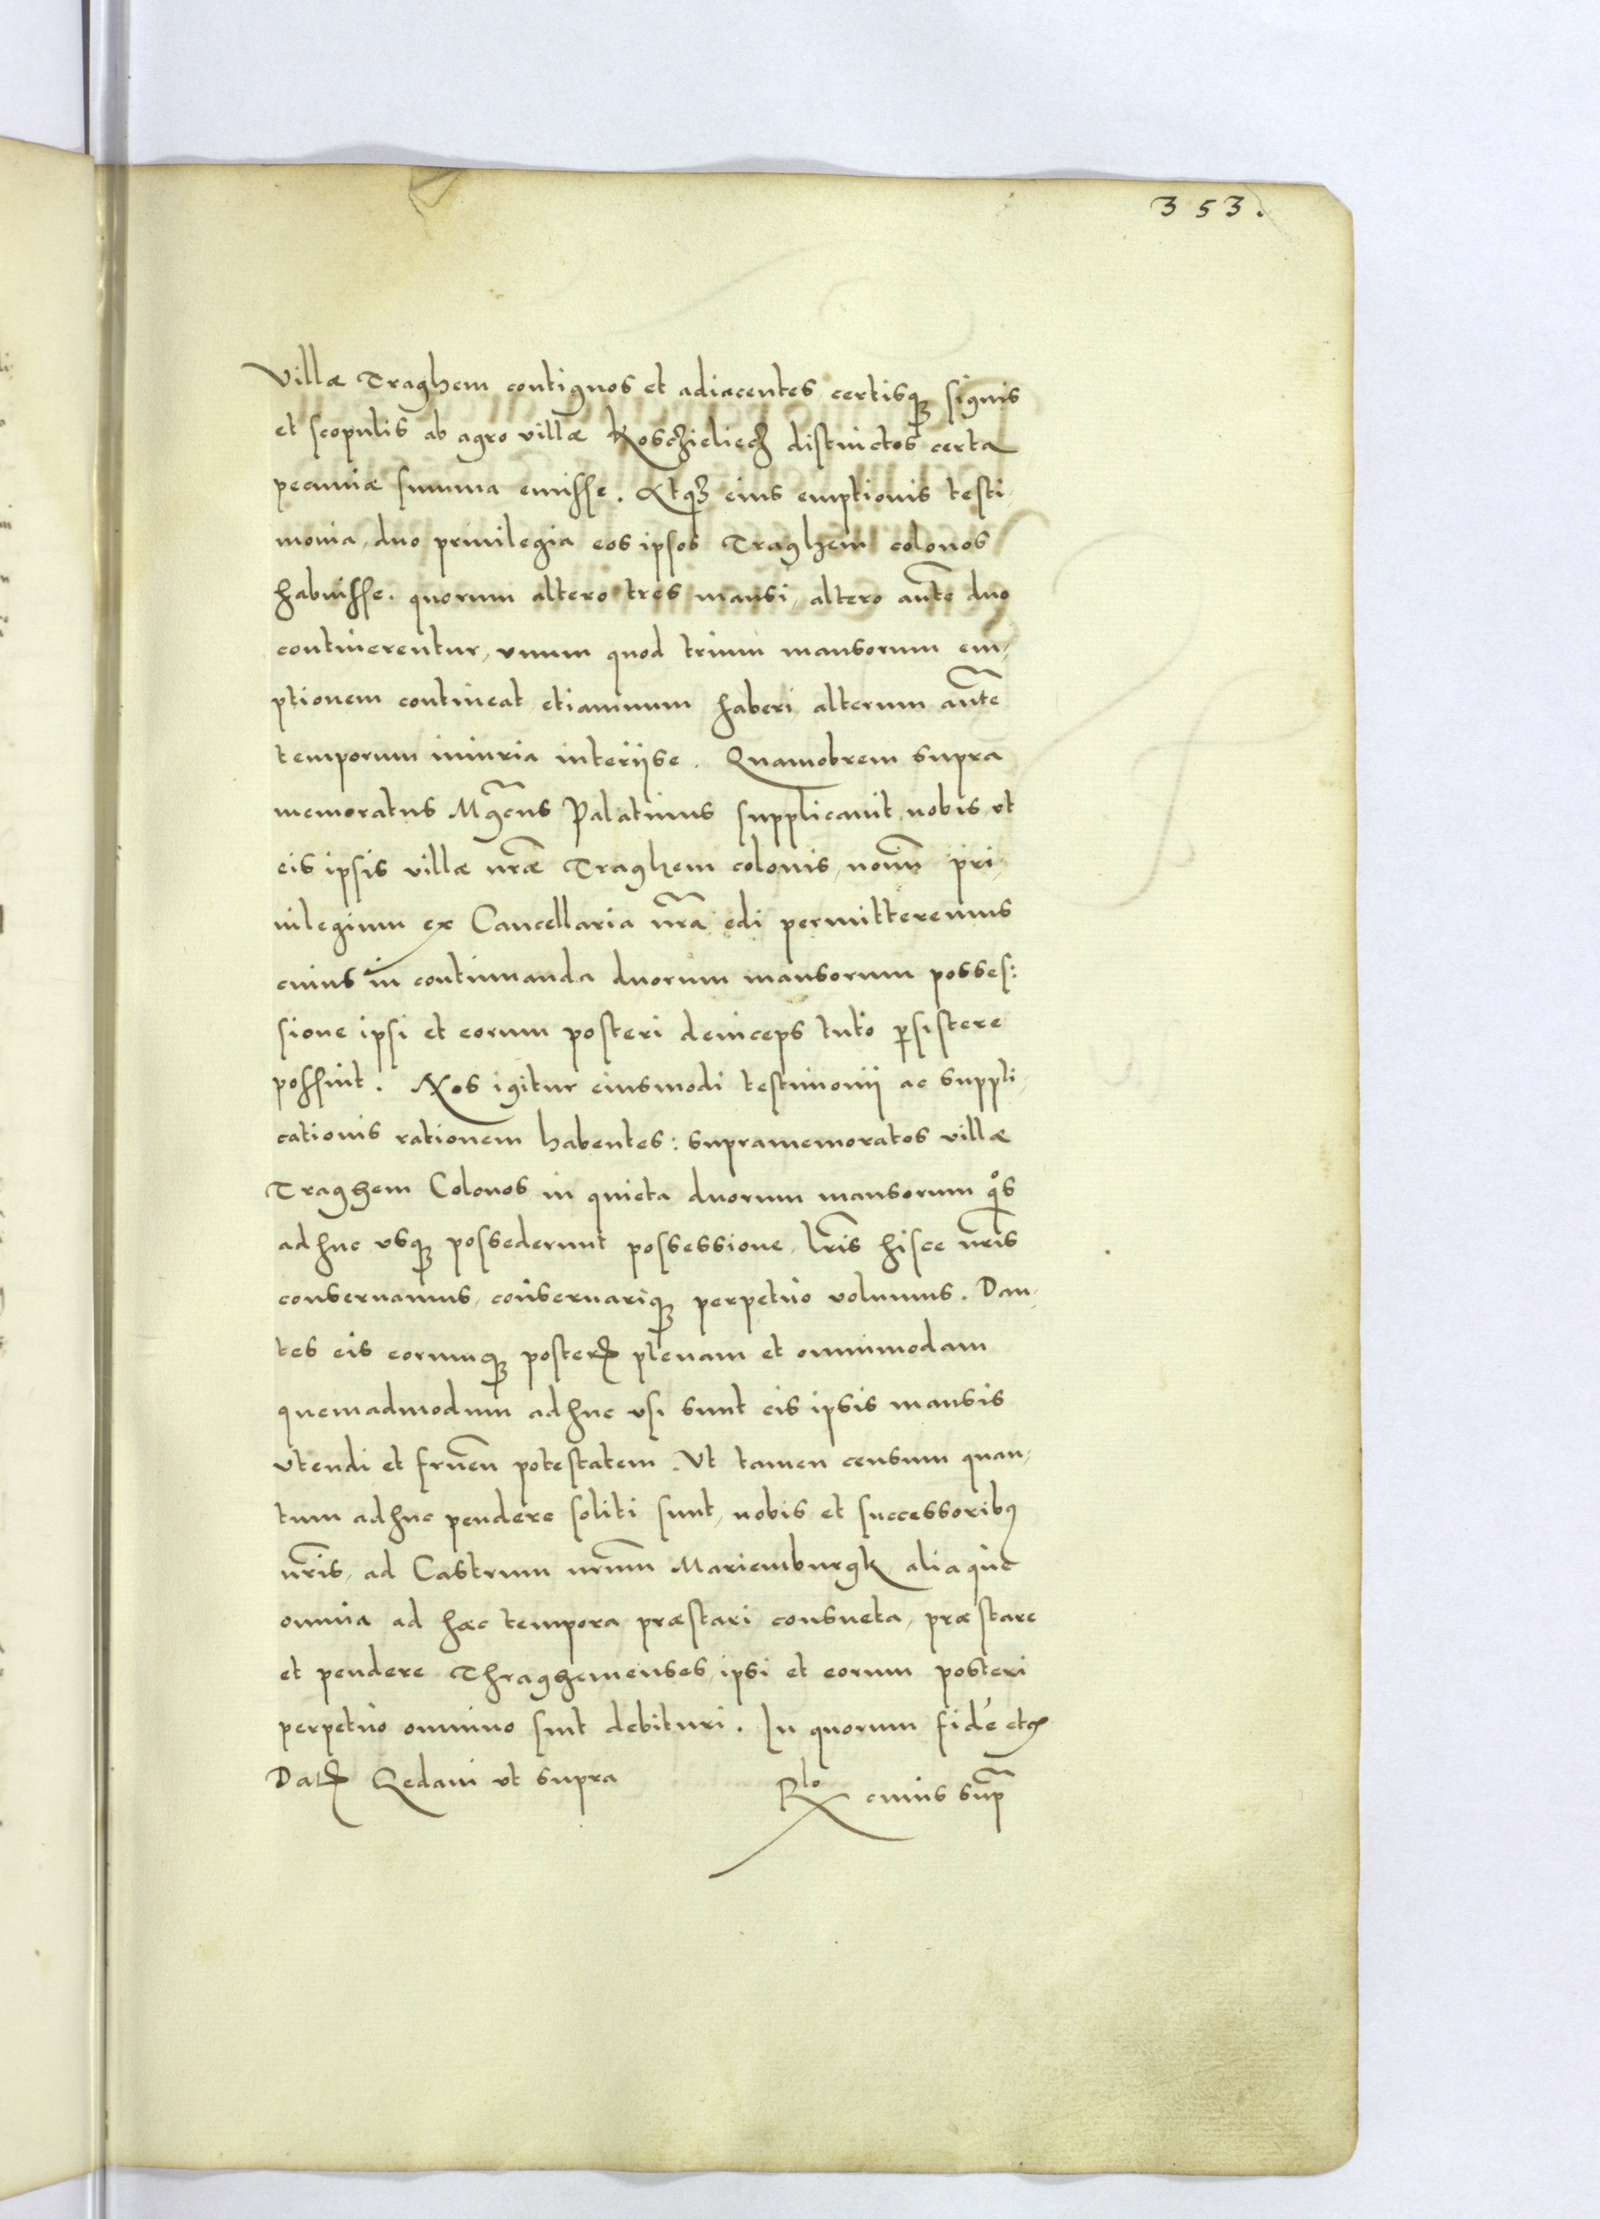 353.
Villæ Traghem contiguos et adiacentes certisq₃ signis
et scopulis ab agro villæ Koschieliecz distinctos certa
pecuniæ summa emisse. Atq₃ eius emptionis testi,
monia, duo priuilegia eos ipsos Traghem colonos
habuisse. quorum altero tres mansi, altero aut̃e duo
continerentur, vnum quod trium mansorum em,
ptionem contineat etiamnum haberi alterum aut̃e
temporum iniuria interijse. Quamobrem supra
memoratus Mg̃cus Palatinus supplicauit nobis, vt
eis ipsis villæ nr̃æ Traghem colonis, nouũ pri,
uilegium ex Cancellaria nr̃a edi permitteremus
cuius in continuanda duorum mansorum posses:
sione ipsi et eorum posteri deinceps tuto ꝑsistere
possint. Nos igitur eiusmodi testimonij ac suppli,
cationis rationem habentes: supramemoratos villæ
Traghem Colonos in quieta duorum mansorum qͦs
adhuc vsq₃ possederunt possessione, lr̃is hisce nr̃is
conseruamus, conseruariq₃ perpetuo volumus. Dan,
tes eis eorumq₃ posterꝭ plenam et omnimodam
quemadmodum adhuc vsi sunt eis ipsis mansis
vtendi et fruen̄ potestatem. Vt tamen censum quan,
tum adhuc pendere soliti sunt, nobis et successoribꝰ
nr̃is, ad Castrum nrũm Mariemburgk, aliaque
omnia ad hæc tempora præstari consueta, præstare
et pendere Thraghemenses ipsi et eorum posteri
perpetuo omnino sint debituri. In quorum fidẽ etcꝭ
Datꝭ Gedani vt supra
Rlo cuius sup̃